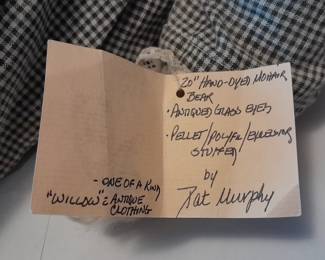 - ONE OF A KIND
"WILLOW" : ANTIQUE
CLOTHING
20" HAND-DYED MOHAIR
BEAR
• ANTIQUED GLASS EYES
• PELLET/POLYFIL/EXCELSIOR
STUFFED
by
Pat Murphy